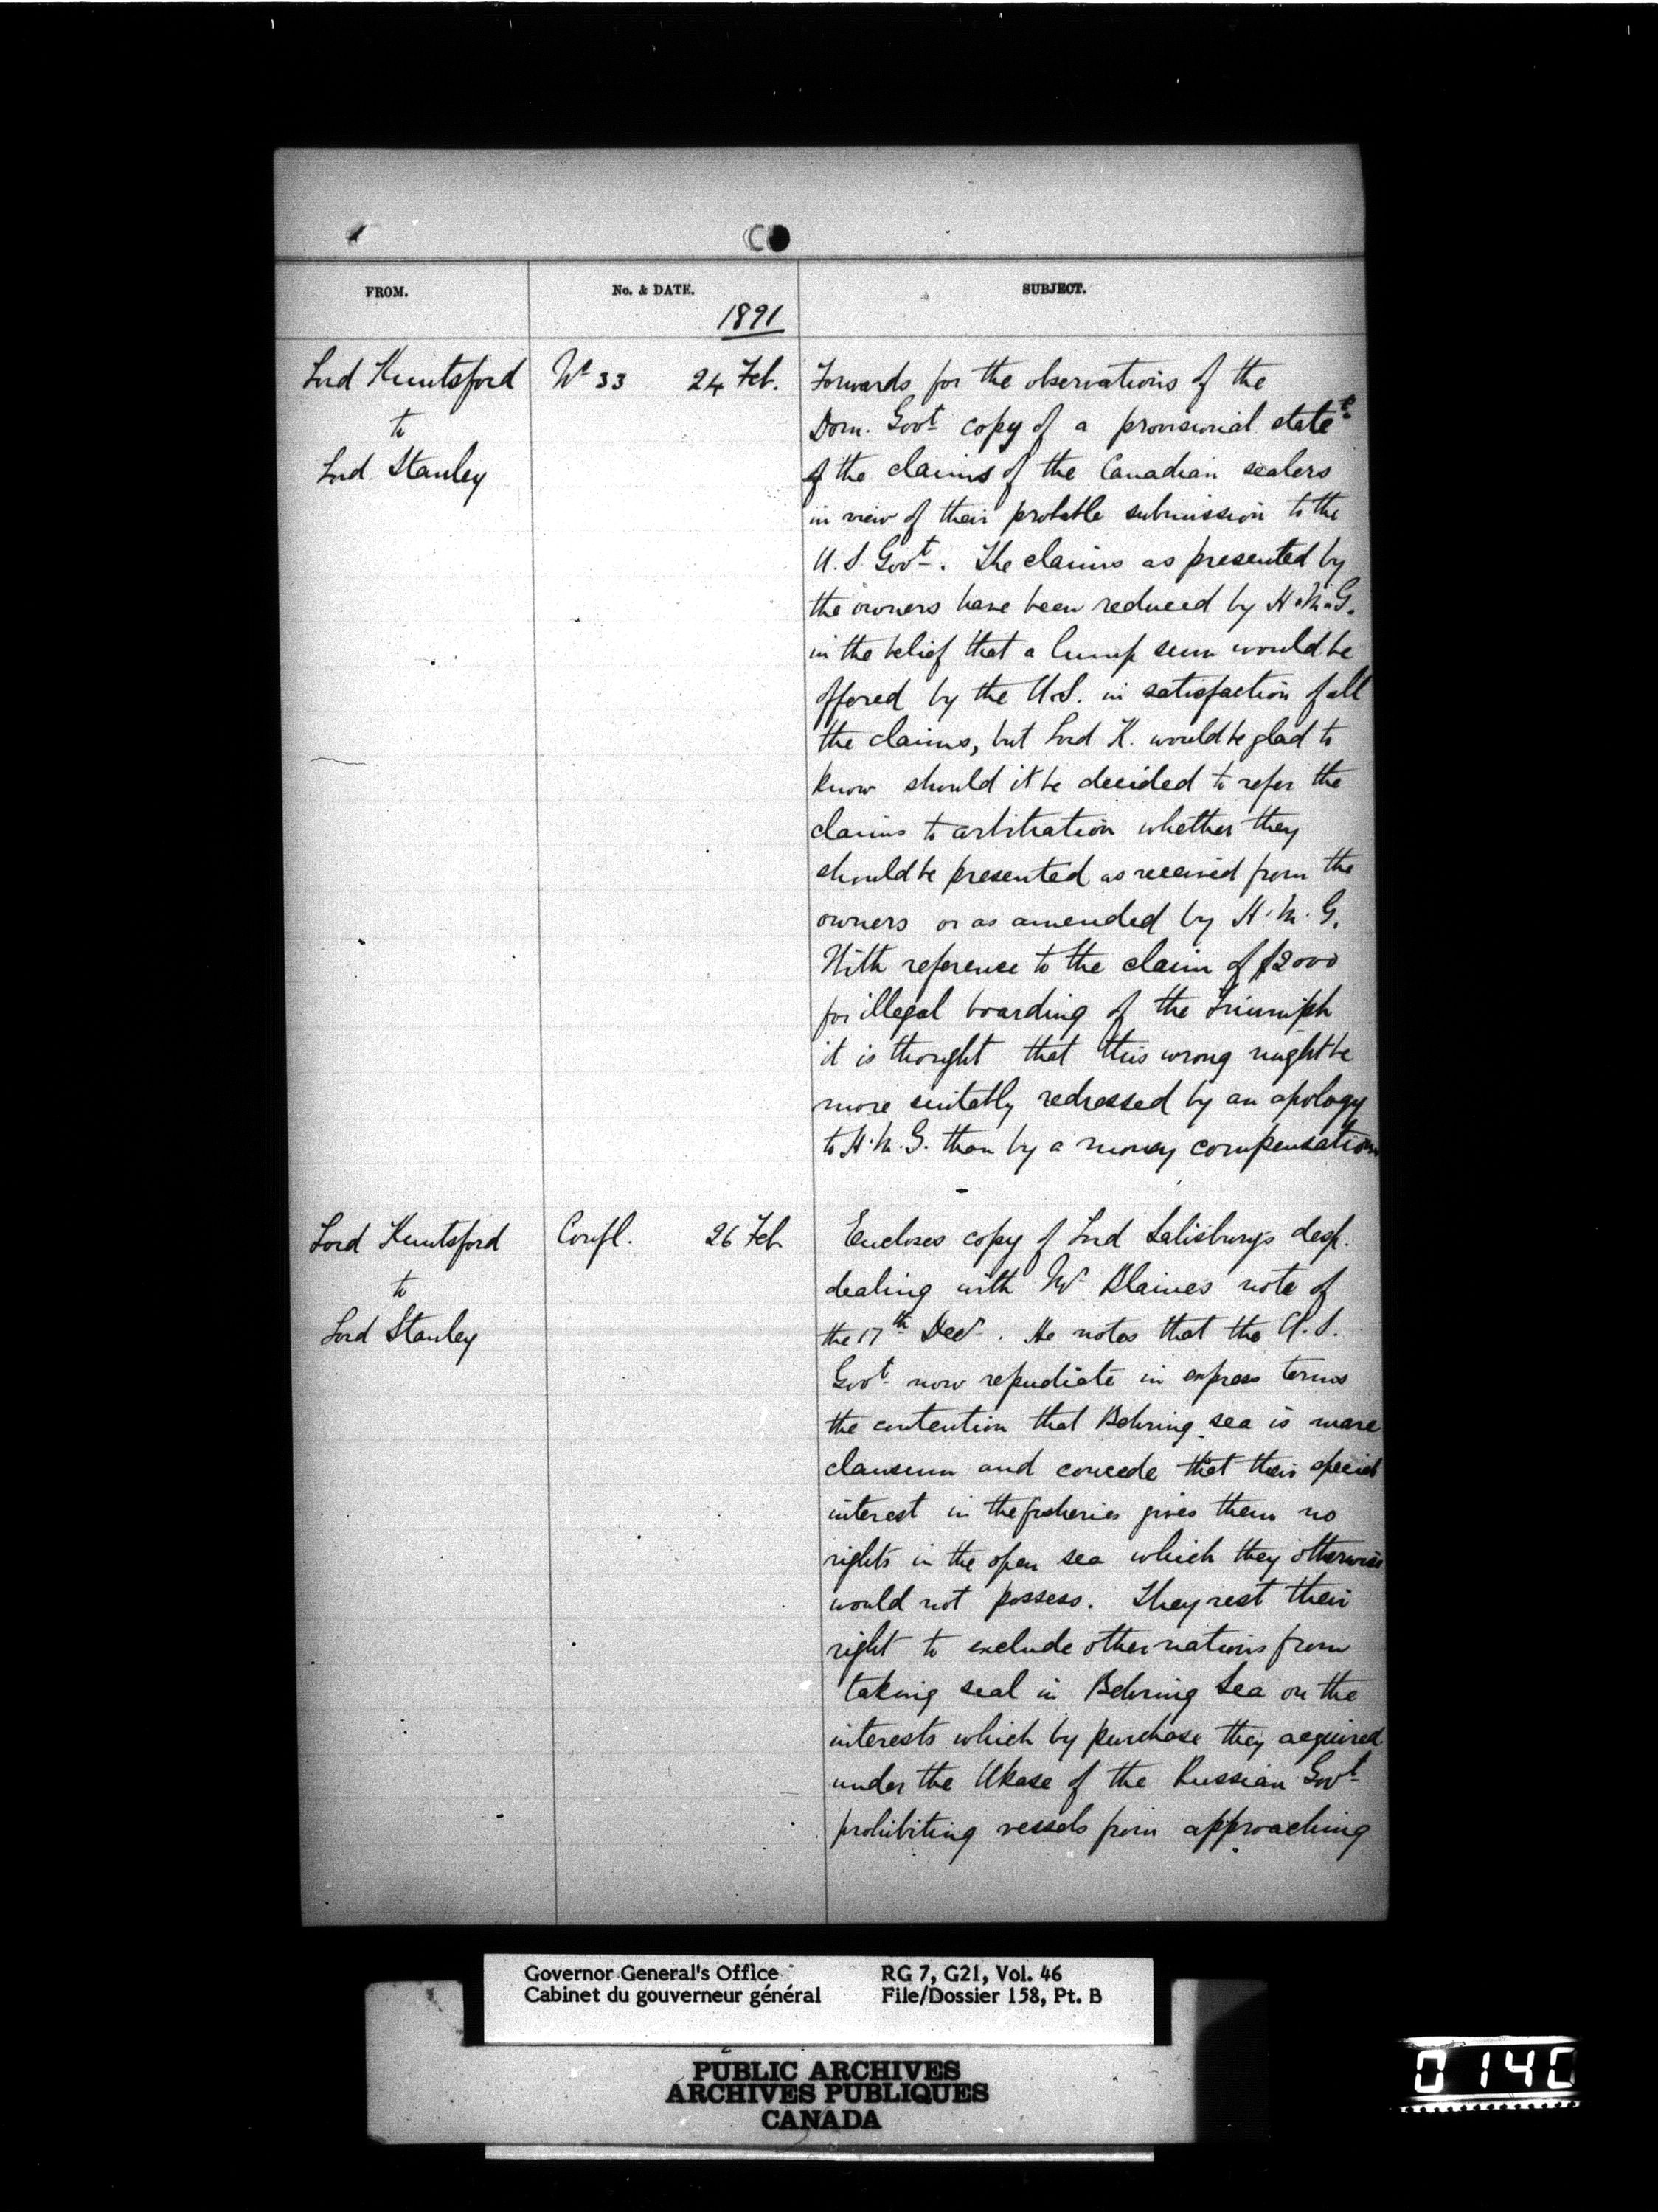 FROM. No. & DATE. SUBJECT.
1891
Lord Knutsford No 33 24 Feb. Forwards for the observations of the
to Dom. Govt copy of a provisional statet
Lord Stanley of the claims of the Canadian sealers
in view of their probable submission to the
U.S. Govt. The claims as presented by
the owners have been reduced by H.M.G.
in the belief that a lump sum would be
offered by the U.S. in satisfaction of all
the claims, but Lord K. would be glad to
know should it be decided to refer the
claims to arbitration whether they
should be presented as received from the
owners or as amended by H.M.G.
With reference to the claim of $2000
for illegal boarding of the Triumph
it is thought that this wrong might be
more suitably redressed by an apology
to H.M.G. than by a money compensation
Lord Knutsford Confl. 26 Feb. Encloses copy of Lord Salisburys desp.
to dealing with Mr Blaines note of
Lord Stanley the 17th Decr. He notes that the U.S.
Govt now repudiate in express terms
the contention that Behring sea is mare
clausum and concede that their special
interest in the fisheries gives them no
rights in the open sea which they otherwise
would not possess. They rest their
right to exclude other nations from
taking seal in Behring Sea on the
interests which by purchase they acquired
under the Ukase of the Russian Govt
prohibiting vessels from approaching
Governor General's Office RG 7, G21, Vol. 46
Cabinet du gouverneur général File/Dossier 158, Pt. B
PUBLIC ARCHIVES
ARCHIVES PUBLIQUES
CANADA
0140